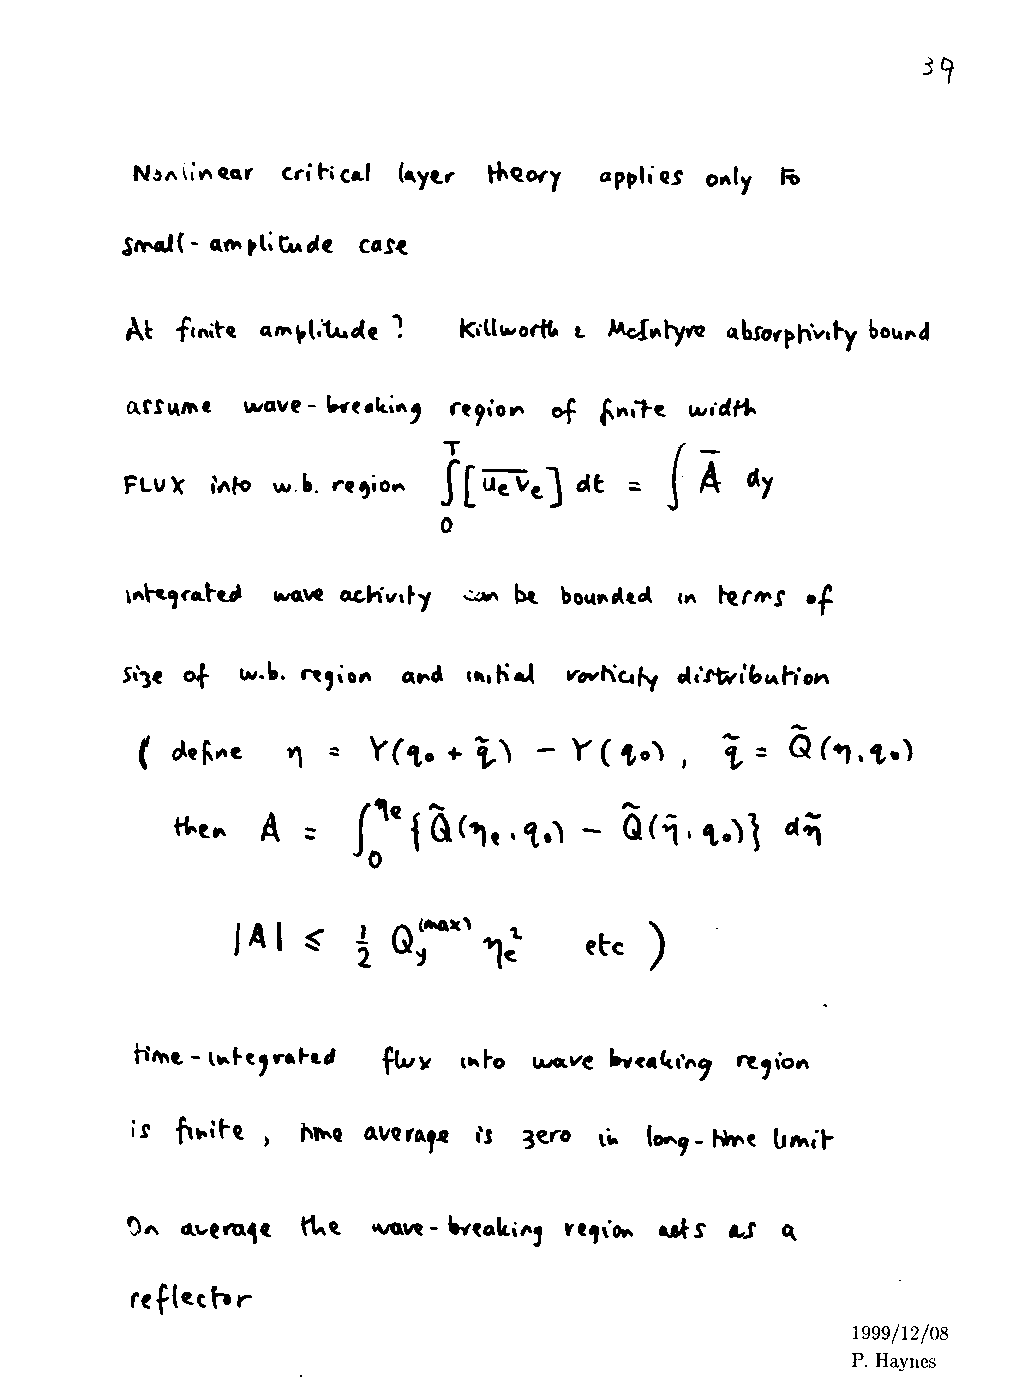 39
Nonlinear critical layer theory applies only to
small-amplitude case
At finite amplitude? Killworth & McIntyre absorptivity bound
assume wave-breaking region of finite width
FLUX into w.b. region ∫₀ᵀ [u̅ₑv̅ₑ] dt = ∫ A̅ dy
integrated wave activity can be bounded in terms of
size of w.b. region and initial vorticity distribution
( define η = Y(q₀ + q̃) − Y(q₀), q̃ = Q̃(η, q₀)
then A = ∫₀^ηₑ {Q̃(ηₑ, q₀) − Q̃(η̃, q₀)} dη̃
|A| ≤ ½ Q_y^(max) ηₑ² etc )
time-integrated flux into wave breaking region
is finite, time average is zero in long-time limit
On average the wave-breaking region acts as a
reflector
1999/12/08
P. Haynes